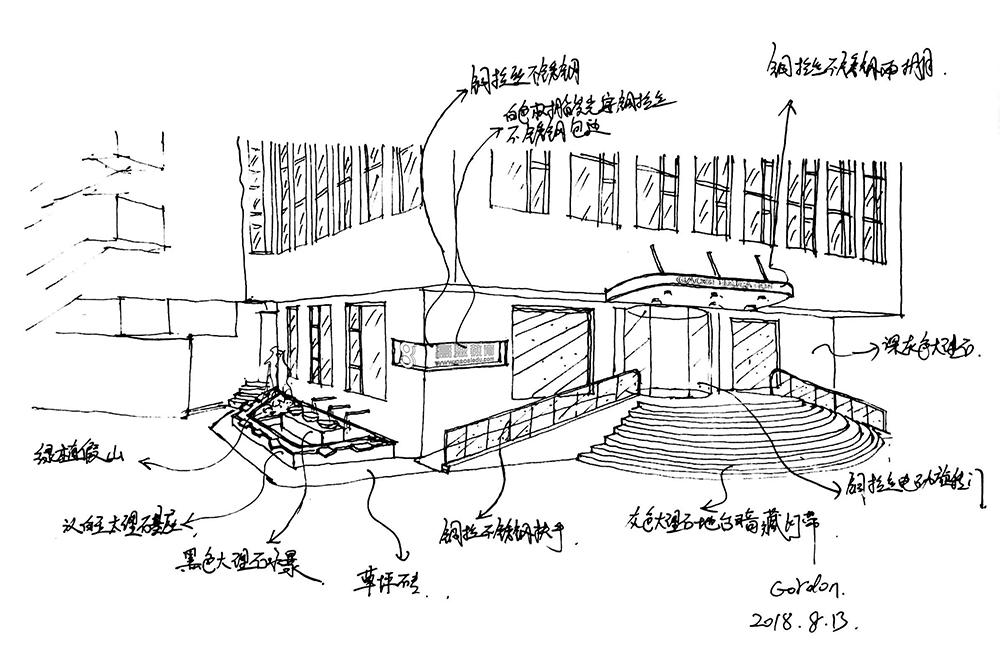 铜拉丝不锈钢
铜拉丝不锈钢雨棚.
白色亚拥
铜拉丝
不锈钢包边
8
www.gaosiedu.com
深灰色大理石.
绿植假山
铜拉丝电动旋转门
汉白玉大理石基座.
铜拉丝不锈钢扶手.
灰色大理石地台暗藏灯带
黑色大理石水景.
草坪砖...
Gordon.
2018.8.13.